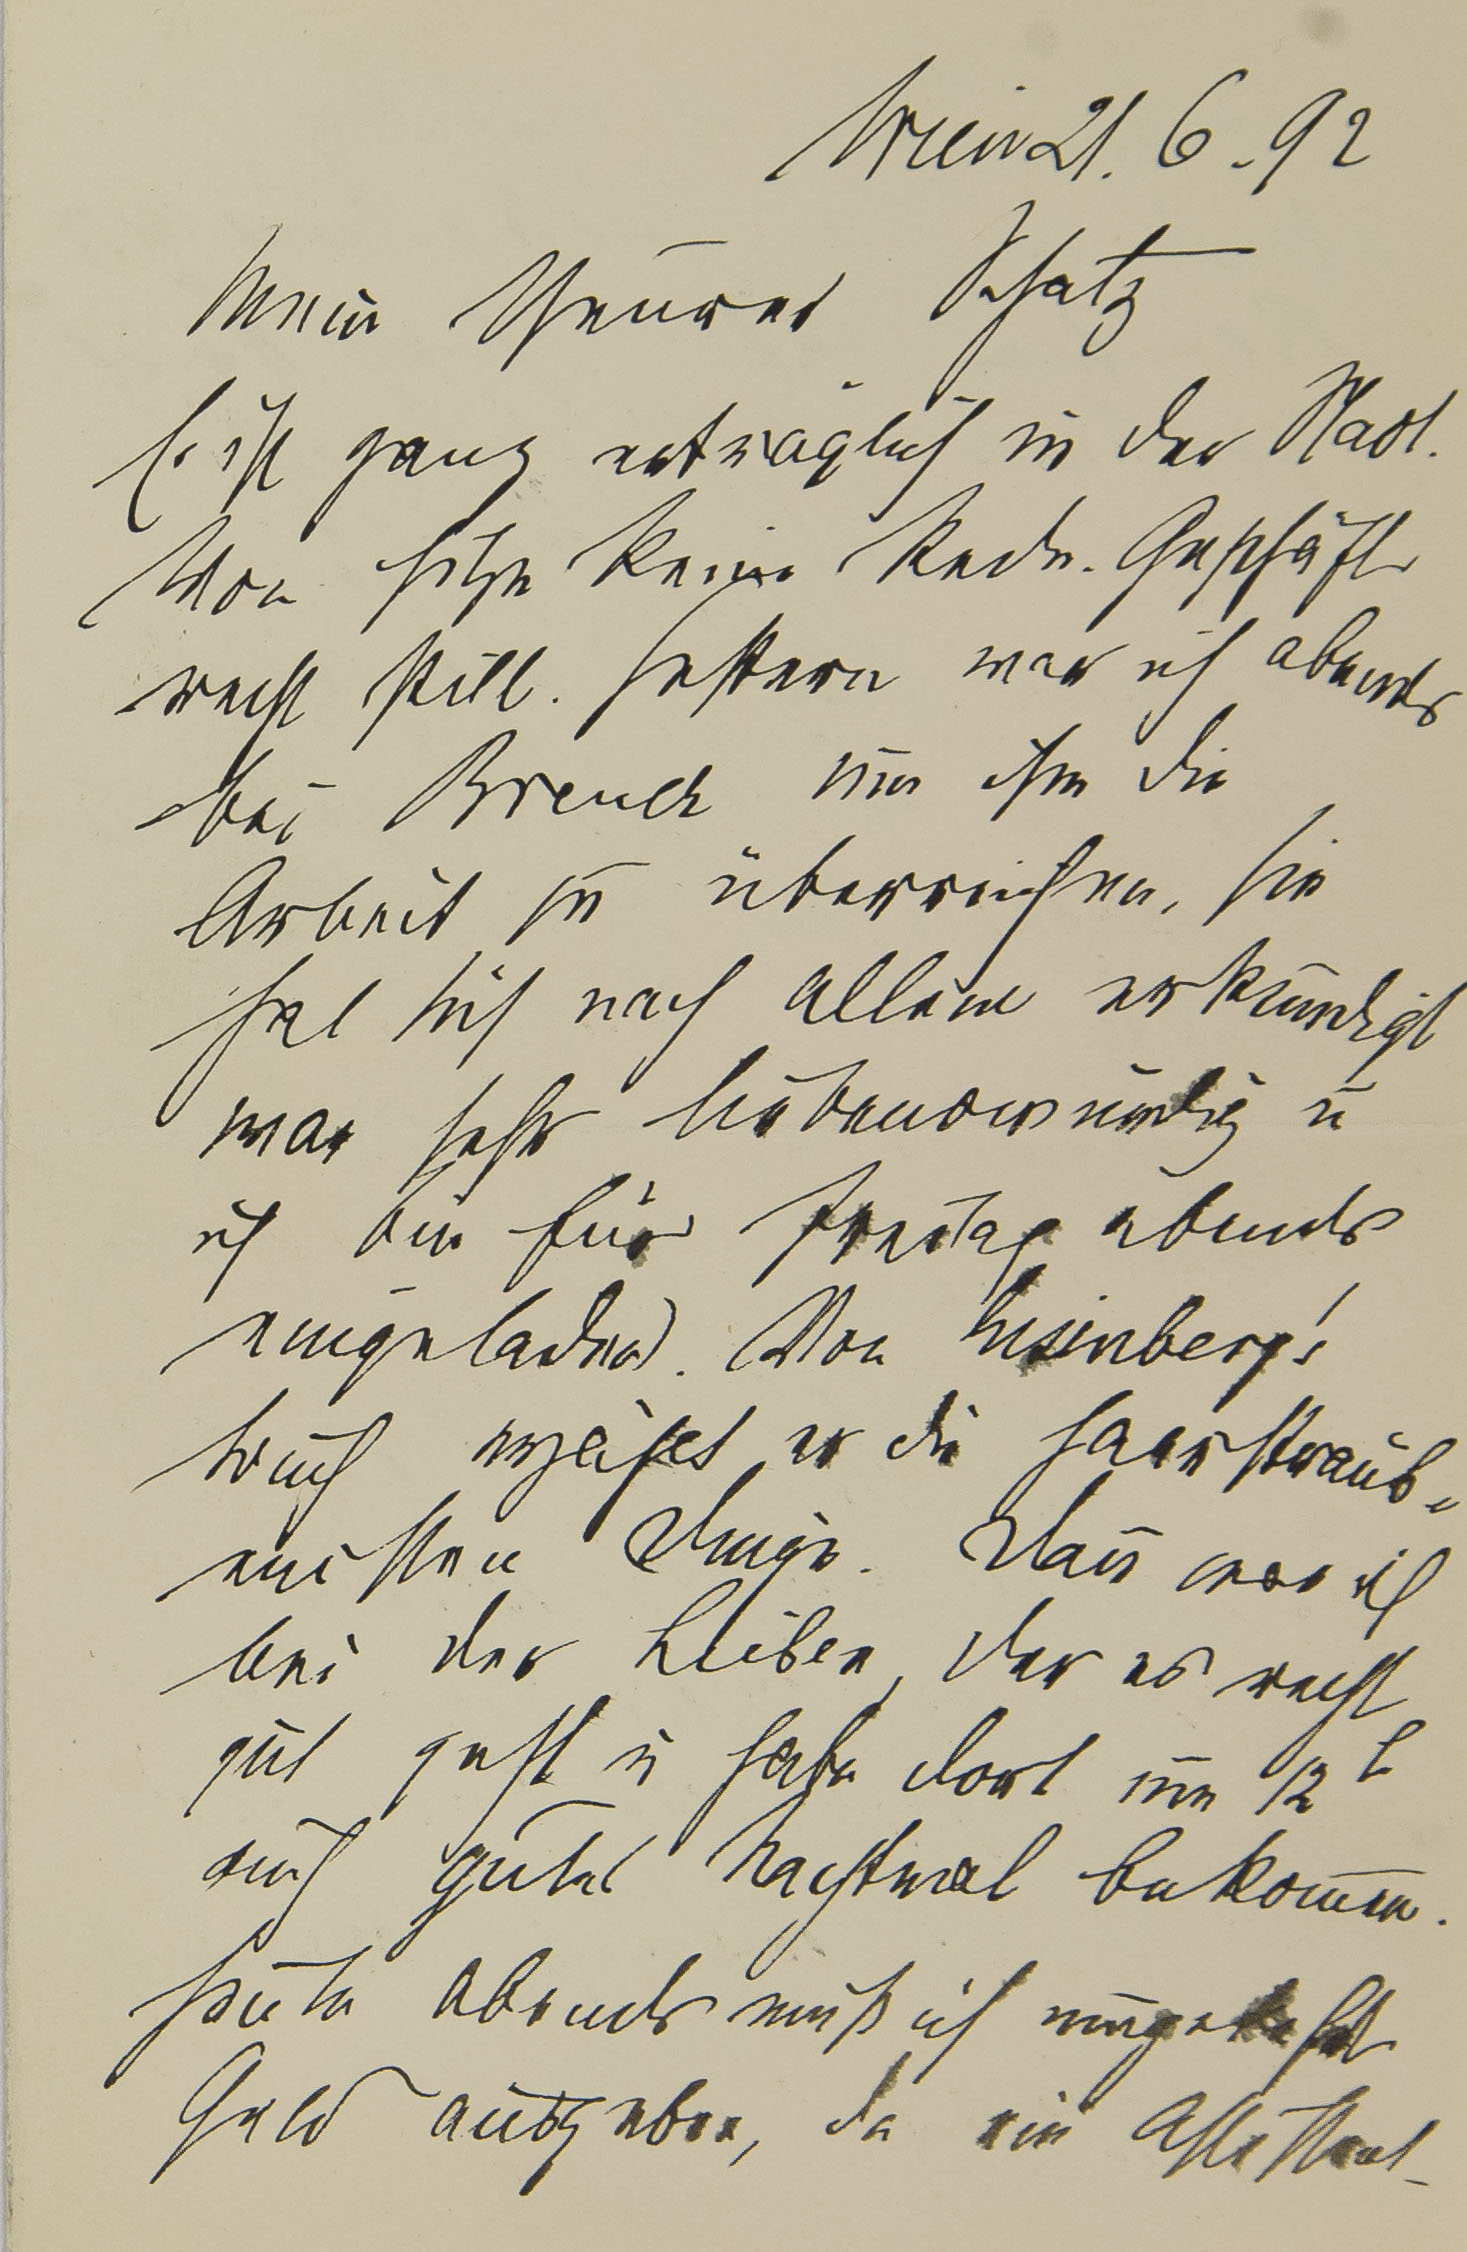 Wien 21. 6. 92
Mein theures Schatz
Es ist ganz erträglich in der Stadt.
Von Hitze keine Rede. Geschäft
recht still. Gestern war ich abends
bei um ihm die
Arbeit zu überreichen, sie
hat sich nach allem erkundigt
war sehr liebenswürdig u
ich bin für Freitag abends
eingeladen. Von
erzählt er die haarsträub-
endsten Dinge. Dann war ich
bei der Lieben, der es recht
gut geht u habe dort um 12 h
auch gutes Nachtmal bekommen.
Heute abends muß ich
Geld ausgeben, da ein Assistent